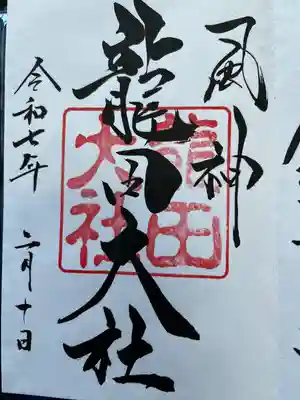 風神
龍田大社
龍田大社
令和七年
二月十日